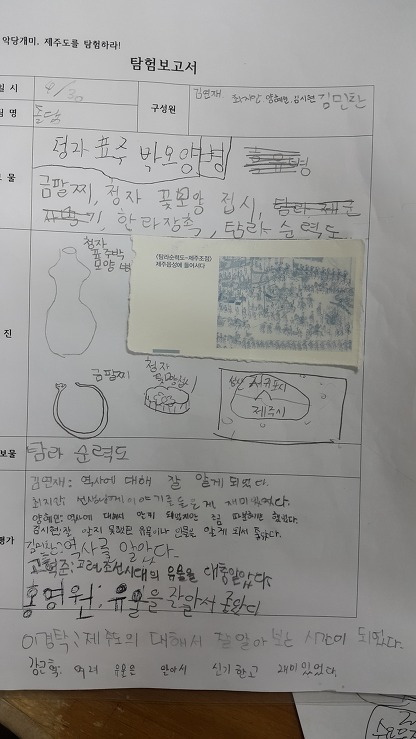 악당개미. 제주도를 탐험하라!
탐험보고서
일 시
4/30
구성원
김연재. 최지안. 양혜민. 김시현 김민찬
팀 명
돌담
보 물
청자 표주박모양병
금팔찌, 청자 꽃모양 접시,
한라장촉, 탐라순력도
사 진
청자
표주박
모양 병
<탐라순력도-제주조점>
제주읍성에 들어서다
금팔찌
청자
서귀포시
제주시
보물
탐라 순력도
평가
김연재: 역사에 대해 잘 알게 되었다.
최지안: 선생님께 이야기를 들은게 재미있었다.
양혜민: 역사에 대해서 알게 되었지만 조금
김시현: 잘 알지 못했던 유물이나 인물을 알게 되서 좋았다.
김민찬: 역사를 알았다.
고려조선시대의 유물을 대충알았다.
홍영원: 유물을 잘 알아서 좋았다
이경탁: 제주도의 대해서 잘 알아보는 시간이 되었다.
강근혁. 여러 유물은 알아서 신기한고 재미있었다.